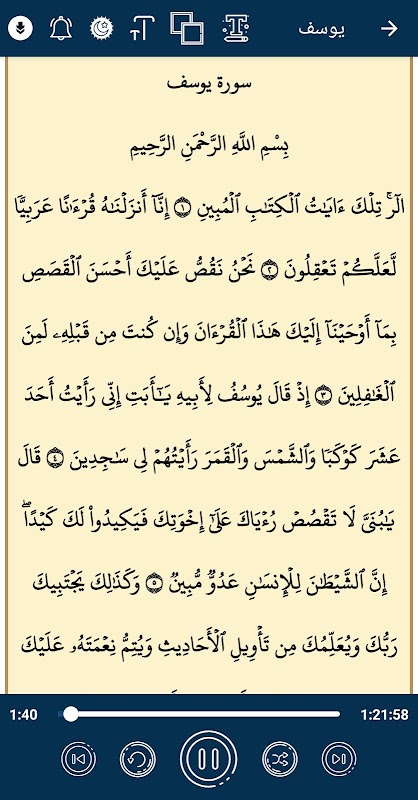 يوسف
سورة يوسف
بِسْمِ اللَّهِ الرَّحْمَنِ الرَّحِيمِ
الٓرۚ تِلۡكَ ءَايَٰتُ ٱلۡكِتَٰبِ ٱلۡمُبِينِ ١ إِنَّآ أَنزَلۡنَٰهُ قُرۡءَٰنًا عَرَبِيّٗا
لَّعَلَّكُمۡ تَعۡقِلُونَ ٢ نَحۡنُ نَقُصُّ عَلَيۡكَ أَحۡسَنَ ٱلۡقَصَصِ
بِمَآ أَوۡحَيۡنَآ إِلَيۡكَ هَٰذَا ٱلۡقُرۡءَانَ وَإِن كُنتَ مِن قَبۡلِهِۦ لَمِنَ
ٱلۡغَٰفِلِينَ ٣ إِذۡ قَالَ يُوسُفُ لِأَبِيهِ يَٰٓأَبَتِ إِنِّي رَأَيۡتُ أَحَدَ
عَشَرَ كَوۡكَبٗا وَٱلشَّمۡسَ وَٱلۡقَمَرَ رَأَيۡتُهُمۡ لِي سَٰجِدِينَ ٤ قَالَ
يَٰبُنَيَّ لَا تَقۡصُصۡ رُءۡيَاكَ عَلَىٰٓ إِخۡوَتِكَ فَيَكِيدُواْ لَكَ كَيۡدًاۖ
إِنَّ ٱلشَّيۡطَٰنَ لِلۡإِنسَٰنِ عَدُوّٞ مُّبِينٞ ٥ وَكَذَٰلِكَ يَجۡتَبِيكَ
رَبُّكَ وَيُعَلِّمُكَ مِن تَأۡوِيلِ ٱلۡأَحَادِيثِ وَيُتِمُّ نِعۡمَتَهُۥ عَلَيۡكَ
1:40 1:21:58